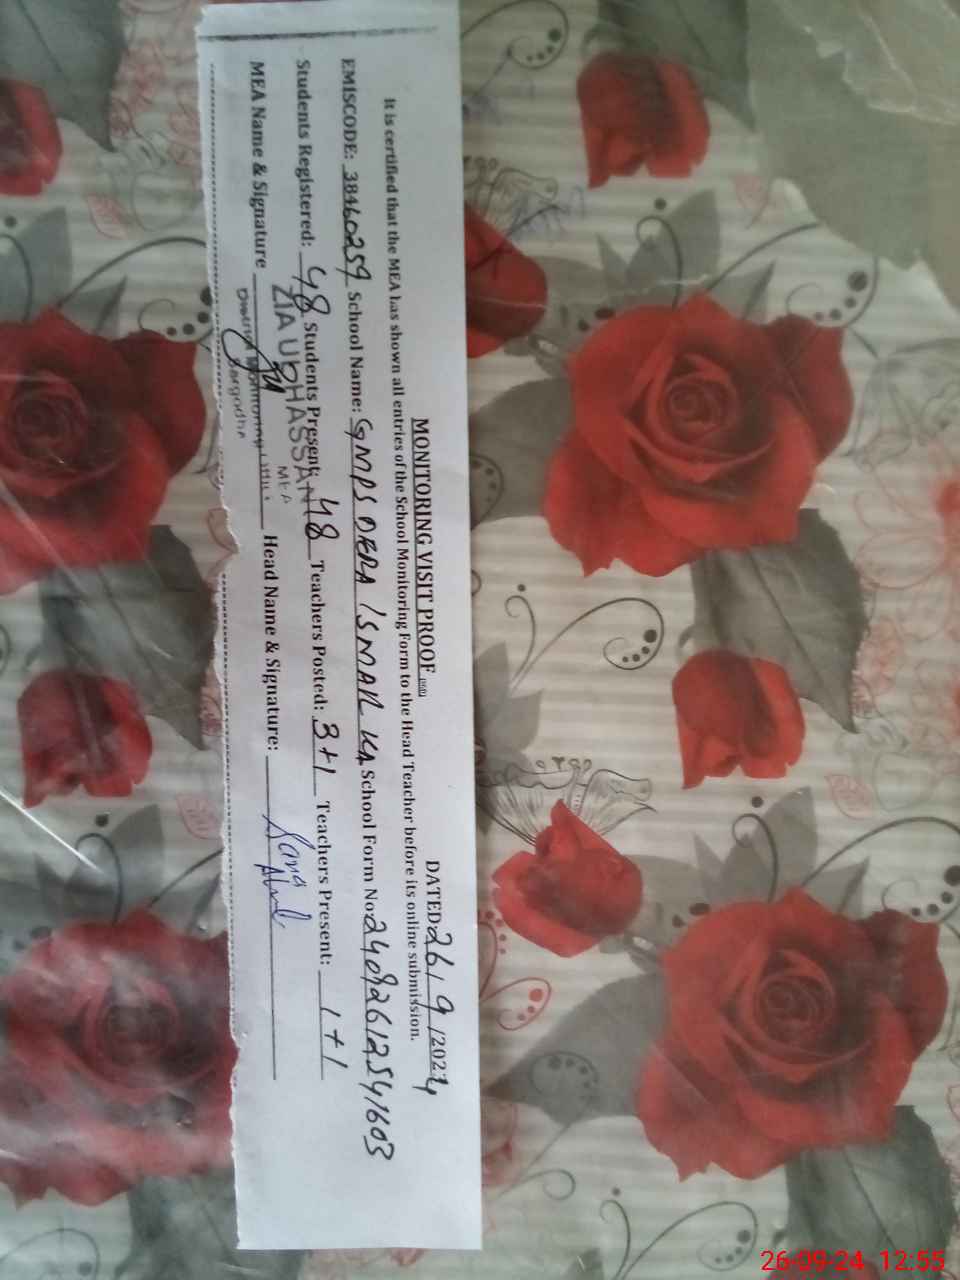 MONITORING VISIT PROOF
DATED: 26/9/2024
It is certified that the MEA has shown all entries of the School Monitoring Form to the Head Teacher before its online submission.
EMISCODE: 38460259 School Name: GMPS DERA ISMAIL KA School Form No: 24092612541603
Students Registered: 48 Students Present: 48 Teachers Posted: 3+1 Teachers Present: 1+1
ZIA UL HASSAN
MEA
MEA Name & Signature Head Name & Signature:
District Monitoring Office
Sargodha
26-09-24 12:55